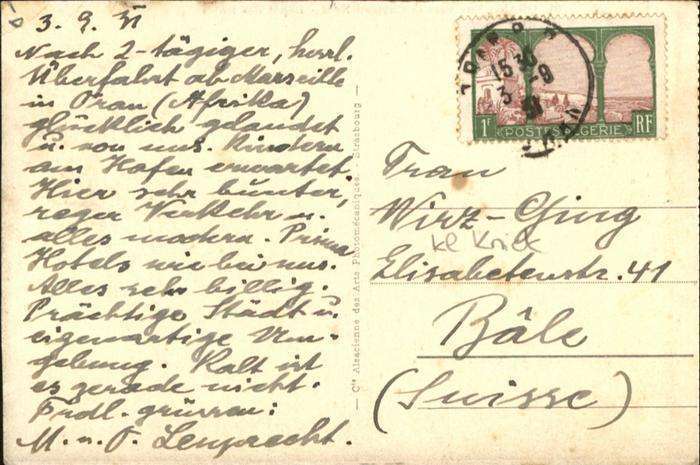 3. 9. 31
Nach 2-tägiger, herrl.
Überfahrt ab Marseille
in Oran (Afrika)
glücklich gelandet
u. von uns. Kindern
am Hafen erwartet.
Hier sehr bunter,
reger Verkehr u.
alles modern. Prima
Hotels wie bei uns.
Alles sehr billig.
Prächtige Stadt u.
eigenartige Um-
gebung. Kalt ist
es gerade nicht.
Frdl. grüssen:
M. u. O.
— Cie Alsacienne des Arts Photomécaniques - Strasbourg —
ORAN
15 30
3 - 9
31
1F POSTES ALGERIE RF
Frau
Wirz-Ging
Elisabetenstr. 41
Bâle
(Suisse)